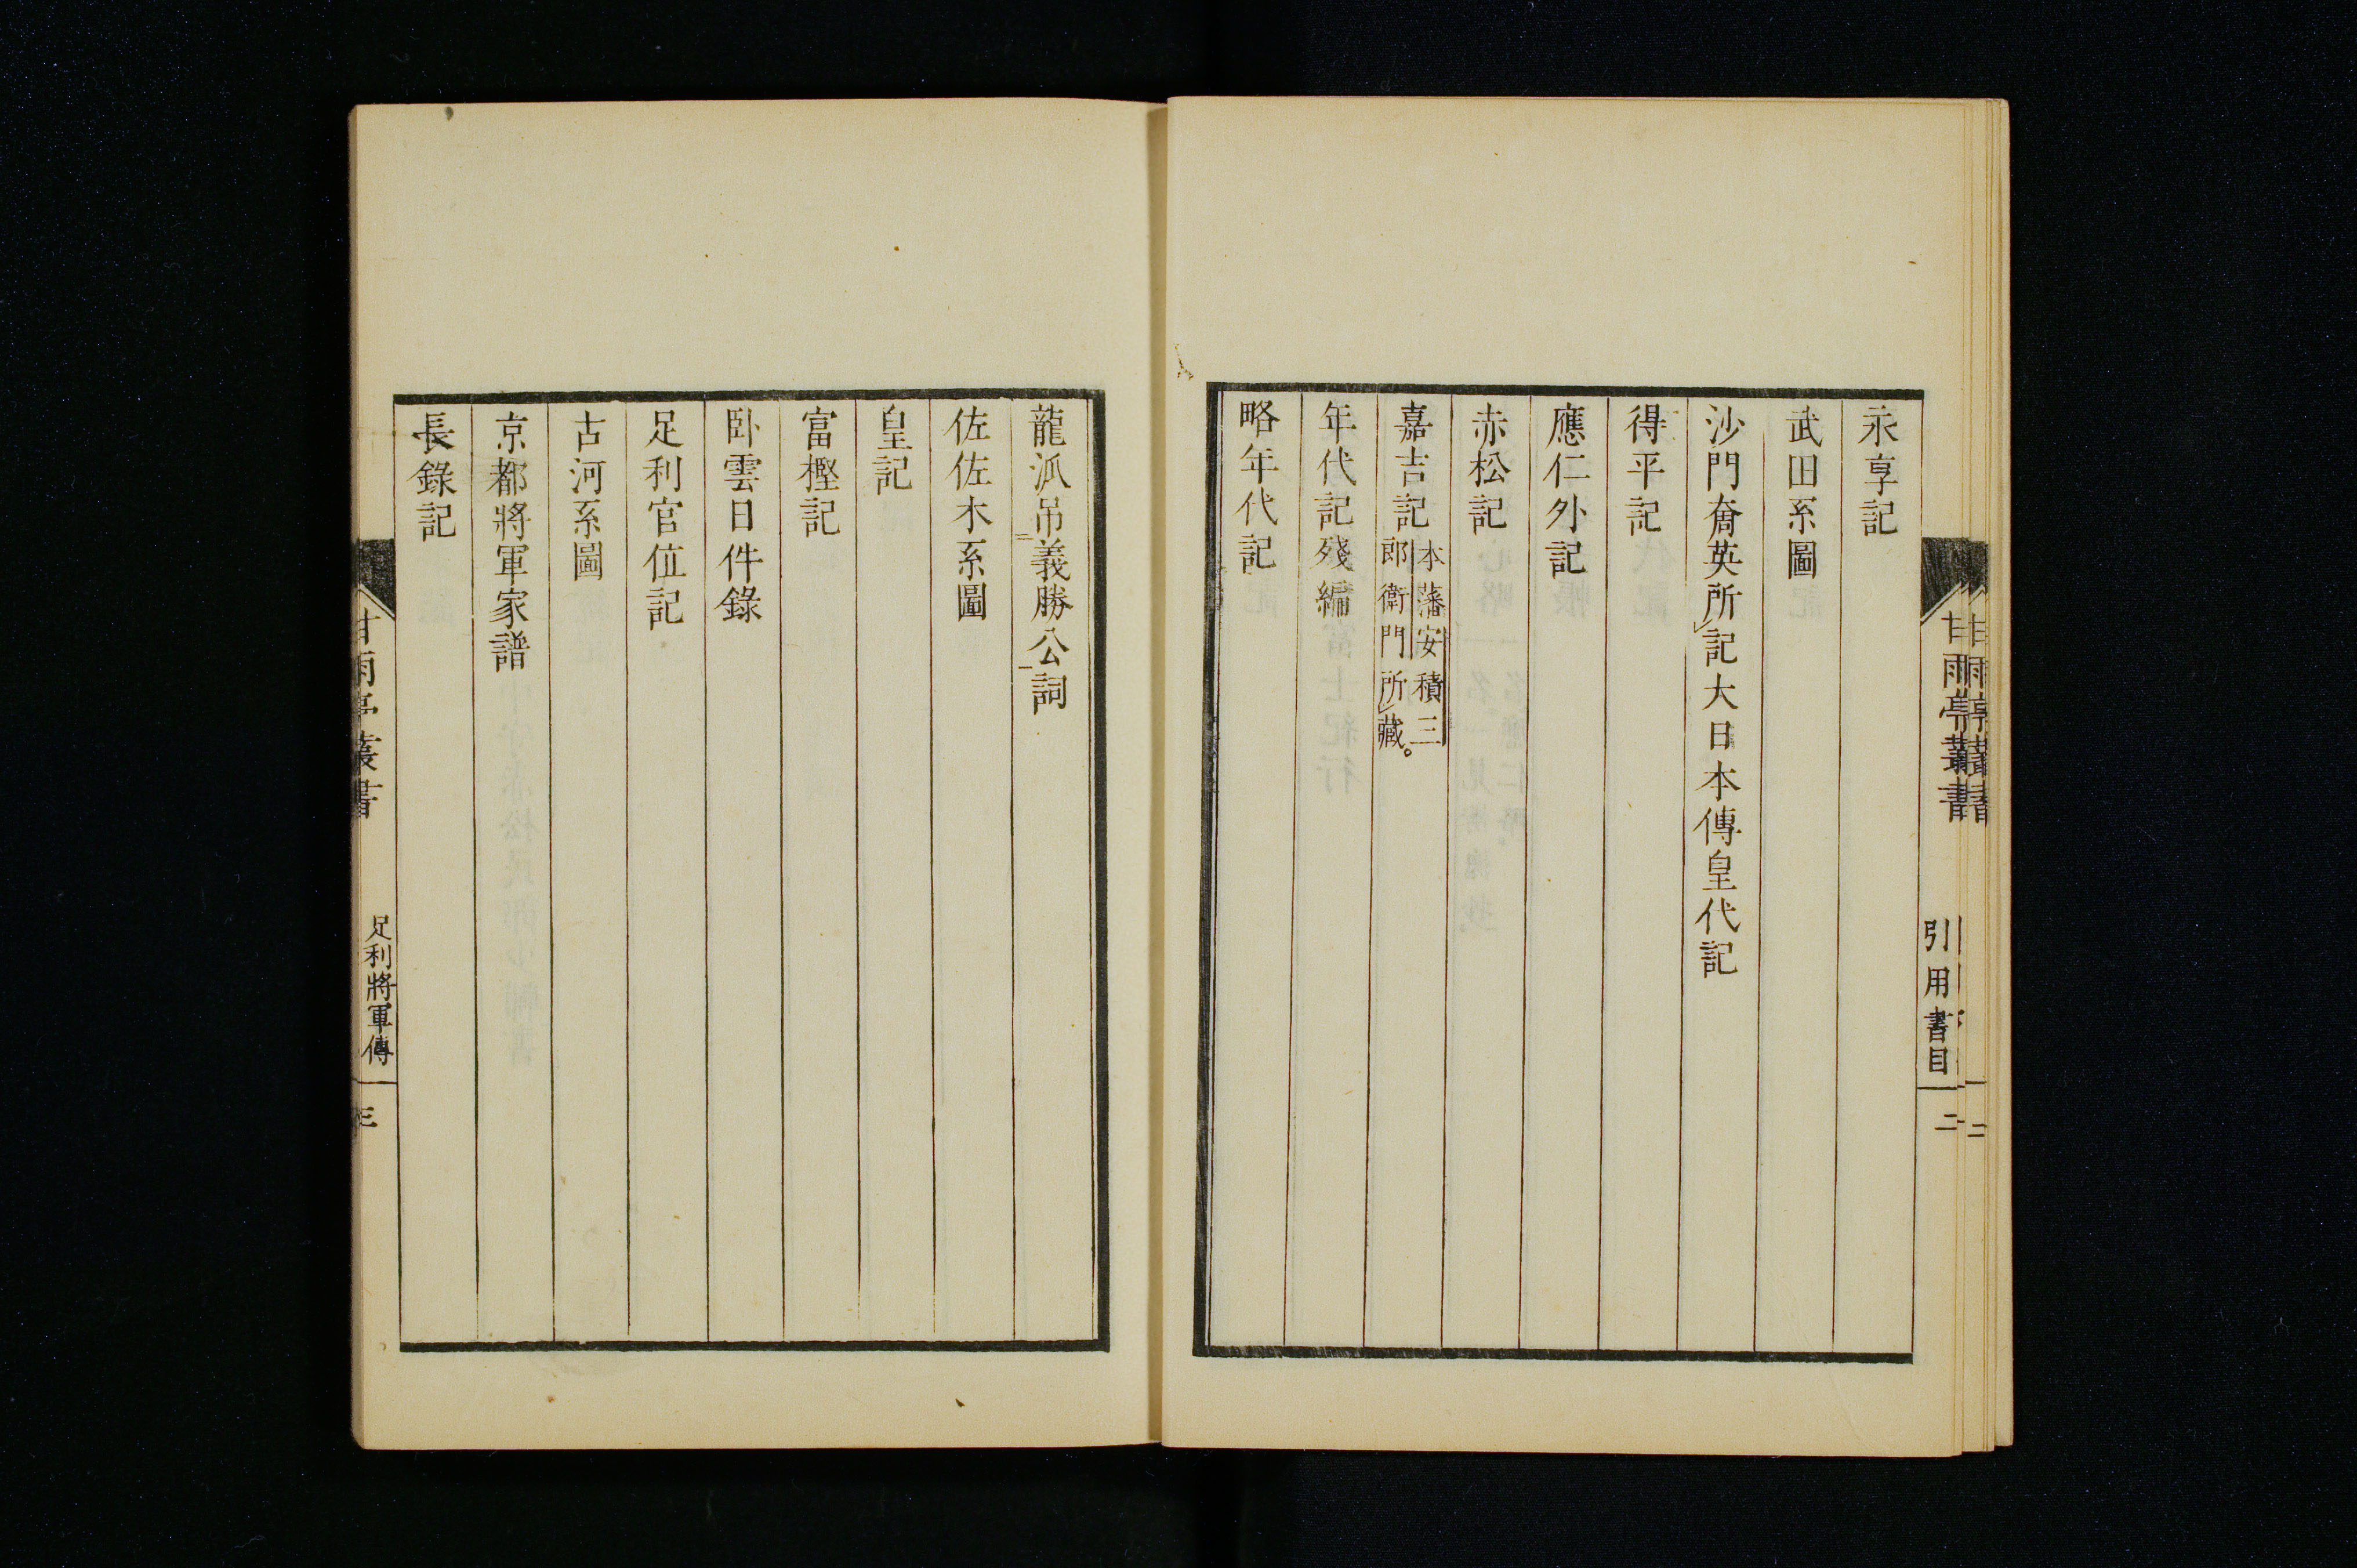 永享記
武田系圖
沙門奝英所記大日本傳皇代記
得平記
應仁外記
赤松記
嘉吉記 本藩安積三郎衛門所藏。
年代記殘編
略年代記
甘雨亭叢書
引用書目
二
龍派吊二義勝公一詞
佐佐木系圖
皇記
富樫記
臥雲日件錄
足利官位記
古河系圖
京都將軍家譜
長錄記
甘雨亭叢書
足利將軍傳
三